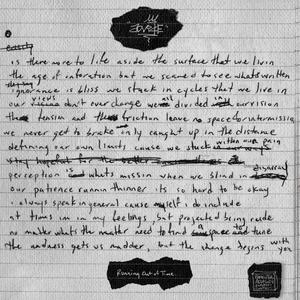 is there more to life aside the surface that we livin
the age of information but we scared to see whats written
ignorance is bliss we stuck in cycles that we live in
our views don't overcharge we all divided our vision
the tension and the friction leave no space for intermission
we never get to brake only caught up in the distance
defining our own limits cause we stuck within our pain
perception is whats missin when we blind in dismissal
our patience runnin thinner its so hard to be okay
i always speak in general cause myself i do include
at times im in my feelings, but projected being rude
no matter whats the matter need to find a space to tune
the madness gets us madder, but the change begins with you
Running Out of Time.